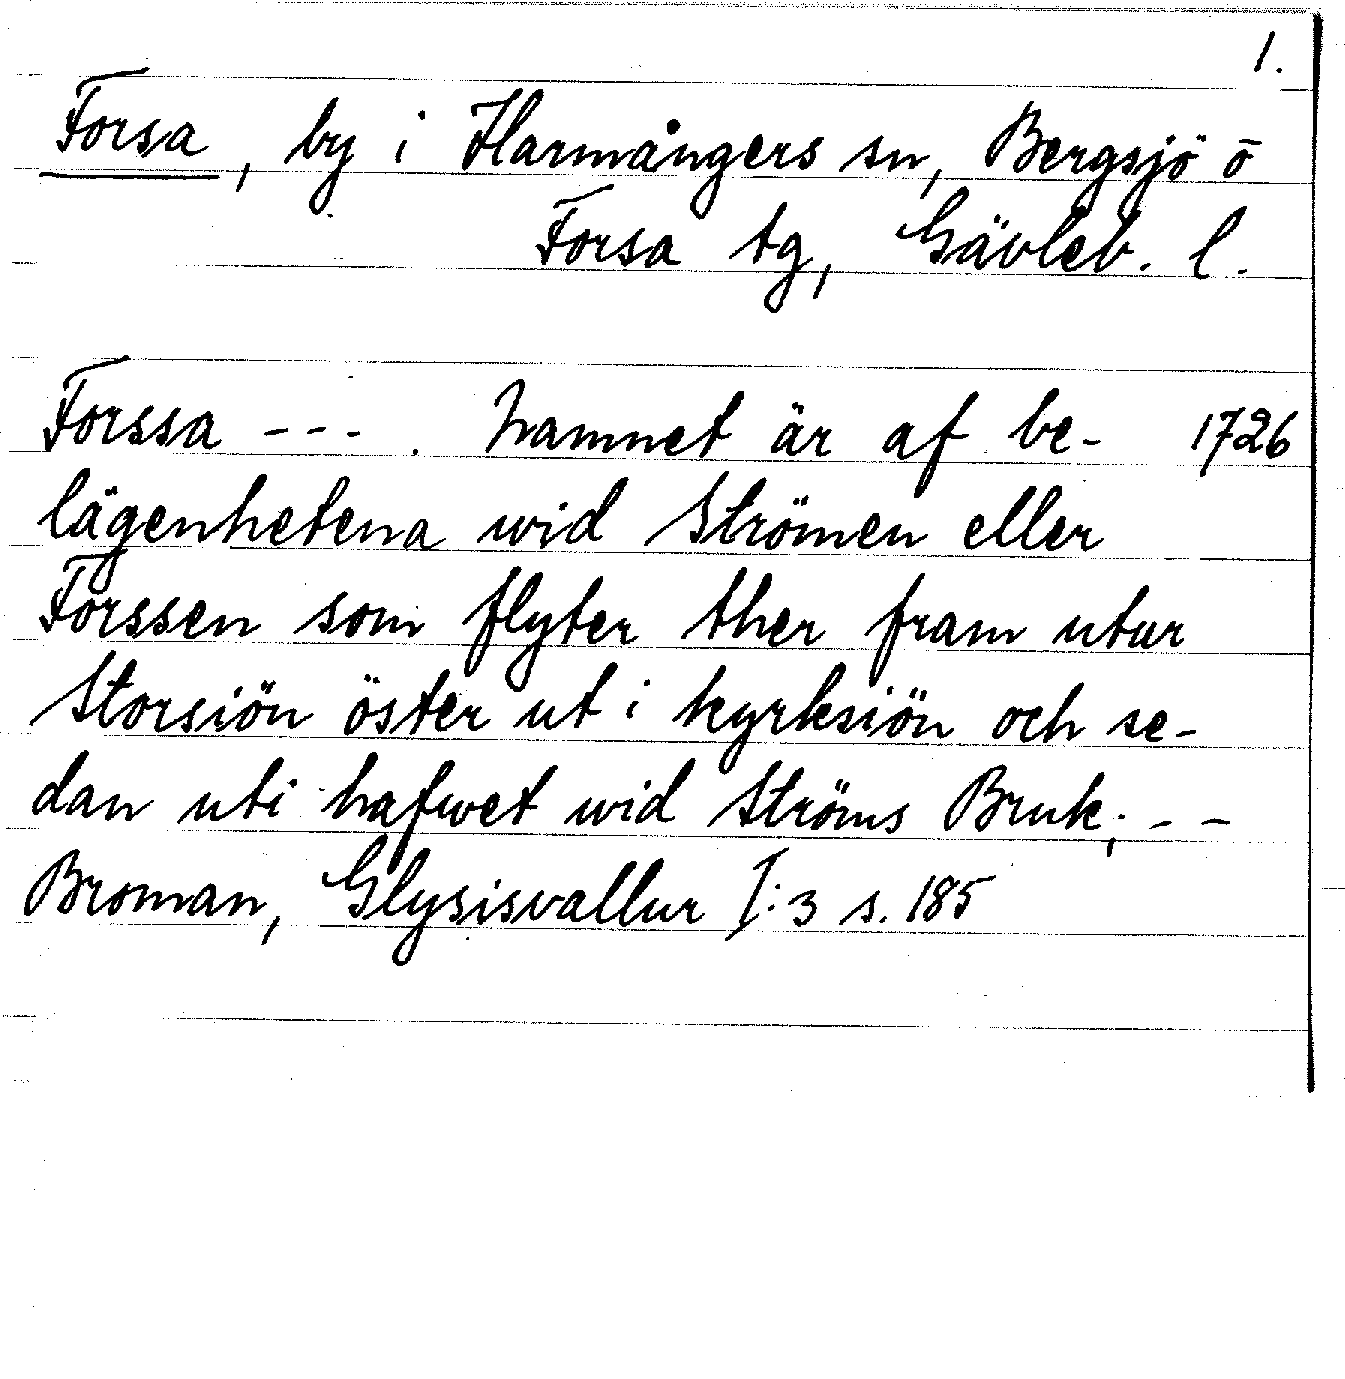 1.
Forsa, by i Harmångers sn, Bergsjö o
Forsa tg, Gävleb. l.
Forssa - - - . Namnet är af be- 1726
lägenhetena wid Strömen eller
Forssen som flyter ther fram utur
Storsiön öster ut i kyrksiön och se-
dan uti hafwet wid Ströms Bruk; - -
Broman, Glysisvallur I:3 s. 185